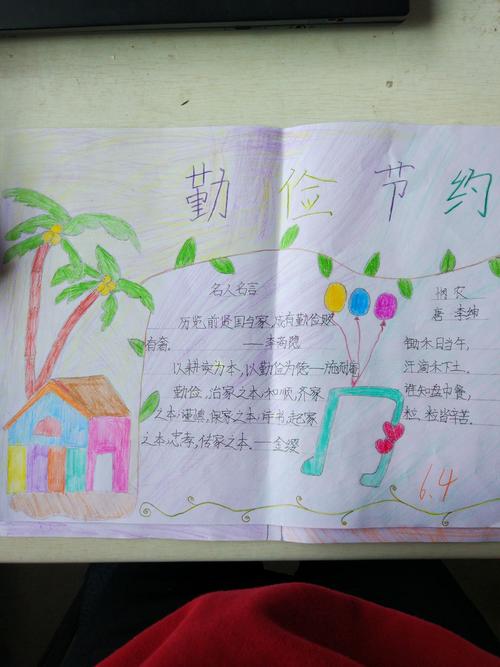 勤俭节约
名人名言
历览前贤国与家,成有勤俭败
有奢. ——李商隐
以耕读为本,以勤俭为德——施耐庵
勤俭,治家之本;和顺,齐家
之本;谨慎,保家之本;诗书,起家
之本;忠孝,传家之本.——金缨
悯农
唐 李绅
锄禾日当午,
汗滴禾下土.
谁知盘中餐,
粒粒皆辛苦.
6.4